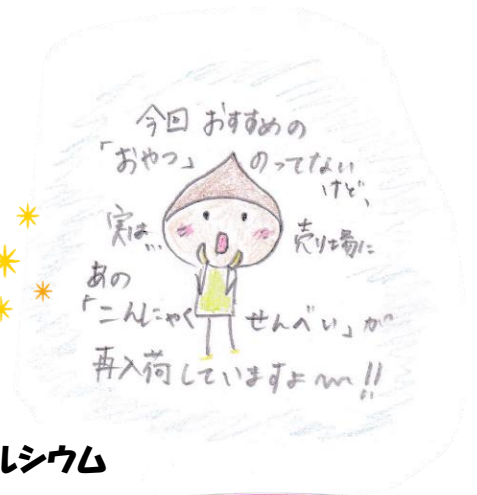 今回 おすすめの
「おやつ」 のってない
けど、
実は… 売り場に
あの
「こんにゃく せんべい」が
再入荷していますよ〜!!
ルシウム